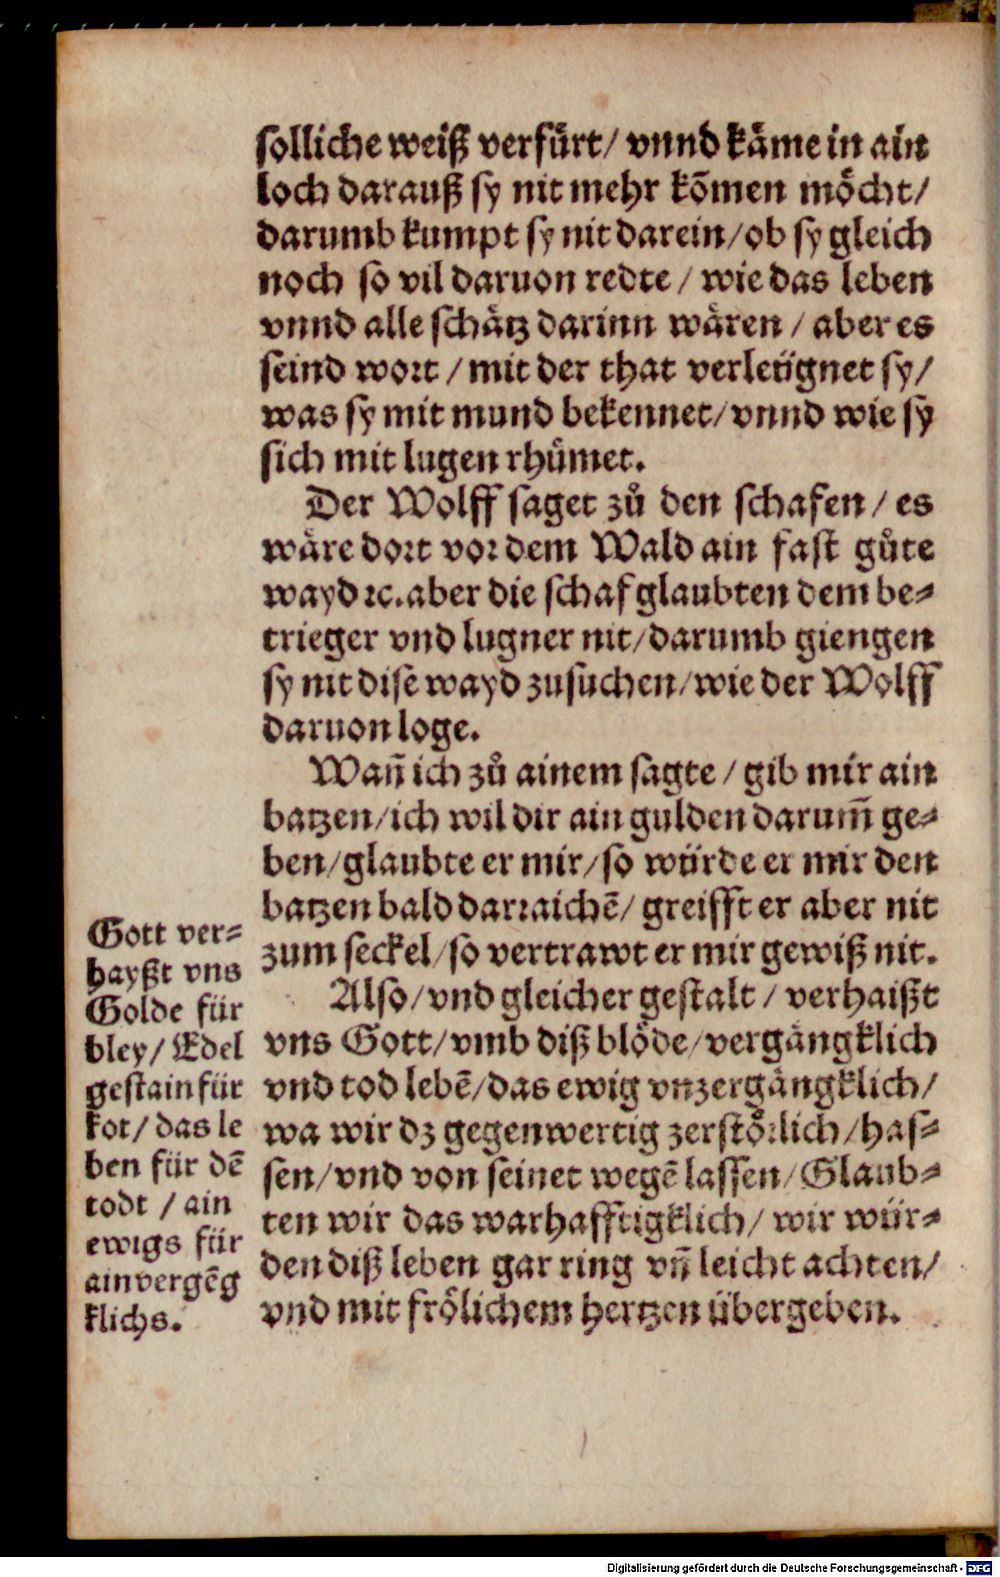 solliche weiß verfürt/ vnnd käme in ain
loch darauß sy nit mehr kōmen möcht/
darumb kumpt sy nit darein/ob sy gleich
noch so vil daruon redte / wie das leben
vnnd alle schätz darinn wären / aber es
seind wort / mit der that verleügnet sy/
was sy mit mund bekennet/vnnd wie sy
sich mit lugen rhümet.
Der Wolff saget zů den schafen / es
wäre dort vor dem Wald ain fast gůte
wayd ꝛc. aber die schaf glaubten dem be⸗
trieger vnd lugner nit/darumb giengen
sy nit dise wayd zusuchen/wie der Wolff
daruon loge.
Wañ ich zů ainem sagte / gib mir ain
batzen/ich wil dir ain gulden darum̄ ge⸗
ben/glaubte er mir/so würde er mir den
batzen bald darraichē/ greifft er aber nit
zum seckel/so vertrawt er mir gewiß nit.
Also/vnd gleicher gestalt / verhaißt
vns Gott/vmb diß blöde/vergängklich
vnd tod lebē/das ewig vnzergängklich/
wa wir dz gegenwertig zerstörlich/has⸗
sen/vnd von seinet wegē lassen/Glaub⸗
ten wir das warhafftigklich/ wir wür⸗
den diß leben gar ring vñ leicht achten/
vnd mit frölichem hertzen übergeben.
Gott ver⸗
hayßt vns
Golde für
bley/ Edel
gestain für
kot/ das le
ben für dē
todt / ain
ewigs für
ain vergēg
klichs.
Digitalisierung gefördert durch die Deutsche Forschungsgemeinschaft - DFG